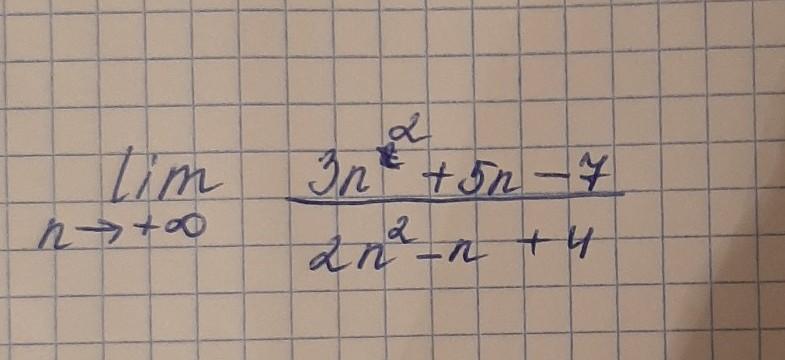 lim 3n² + 5n - 7
n → +∞ 2n² - n + 4